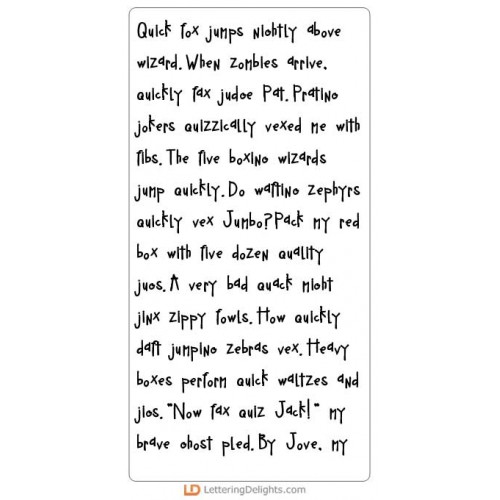 Quick fox jumps nightly above
wizard. When zombies arrive,
quickly fax judge Pat. Prating
jokers quizzically vexed me with
fibs. The five boxing wizards
jump quickly. Do wafting zephyrs
quickly vex Jumbo? Pack my red
box with five dozen quality
jugs. A very bad quack might
jinx zippy fowls. How quickly
daft jumping zebras vex. Heavy
boxes perform quick waltzes and
jigs. "Now fax quiz Jack!" my
brave ghost pled. By Jove, my
LD LetteringDelights.com